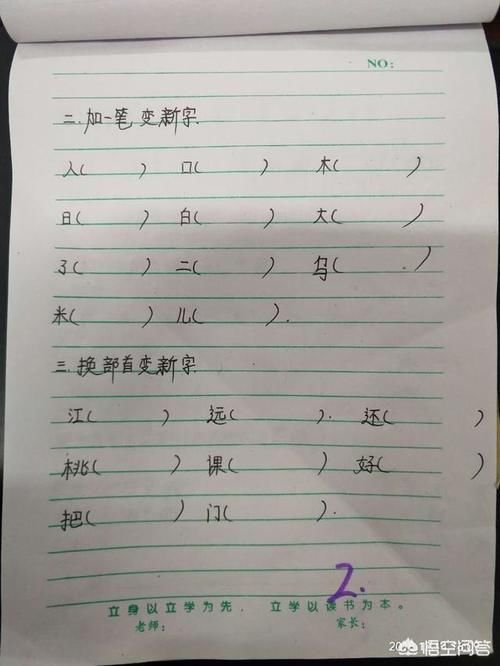 NO:
二.加一笔变新字.
人( ) 口( ) 木( )
日( ) 白( ) 大( )
了( ) 二( ) 乌( )
米( ) 儿( ).
三.换部首变新字
江( ) 远( ). 还( )
桃( ) 课( ) 好( )
把( ) 门( ).
2.
立身以立学为先， 立学以读书为本。
老师: 家长:
悟空问答